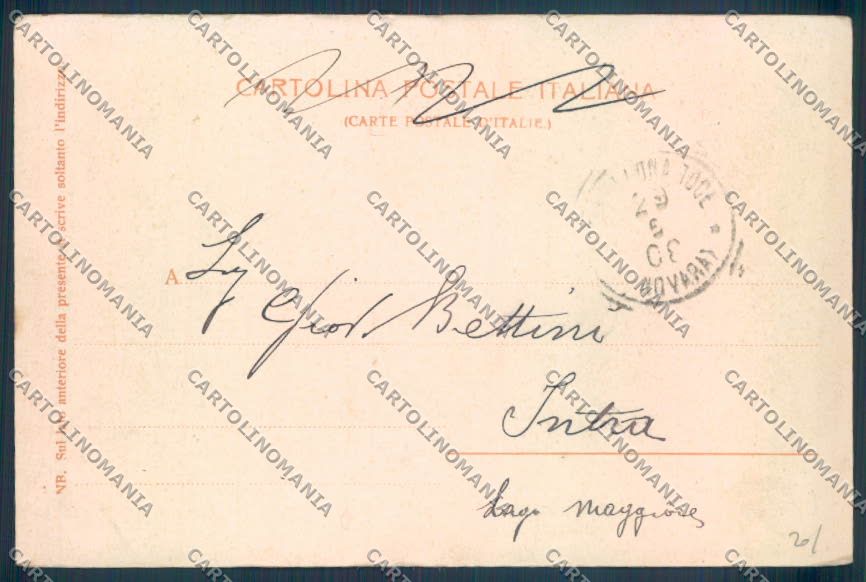 CARTOLINA POSTALE ITALIANA
(CARTE POSTALE D'ITALIE.)
NB. Sul lato anteriore della presente si scrive soltanto l'indirizzo
TOCE
30
(NOVARA)
A
Giov. Bettini
Intra
Lago Maggiore
20/
CARTOLINOMANIA